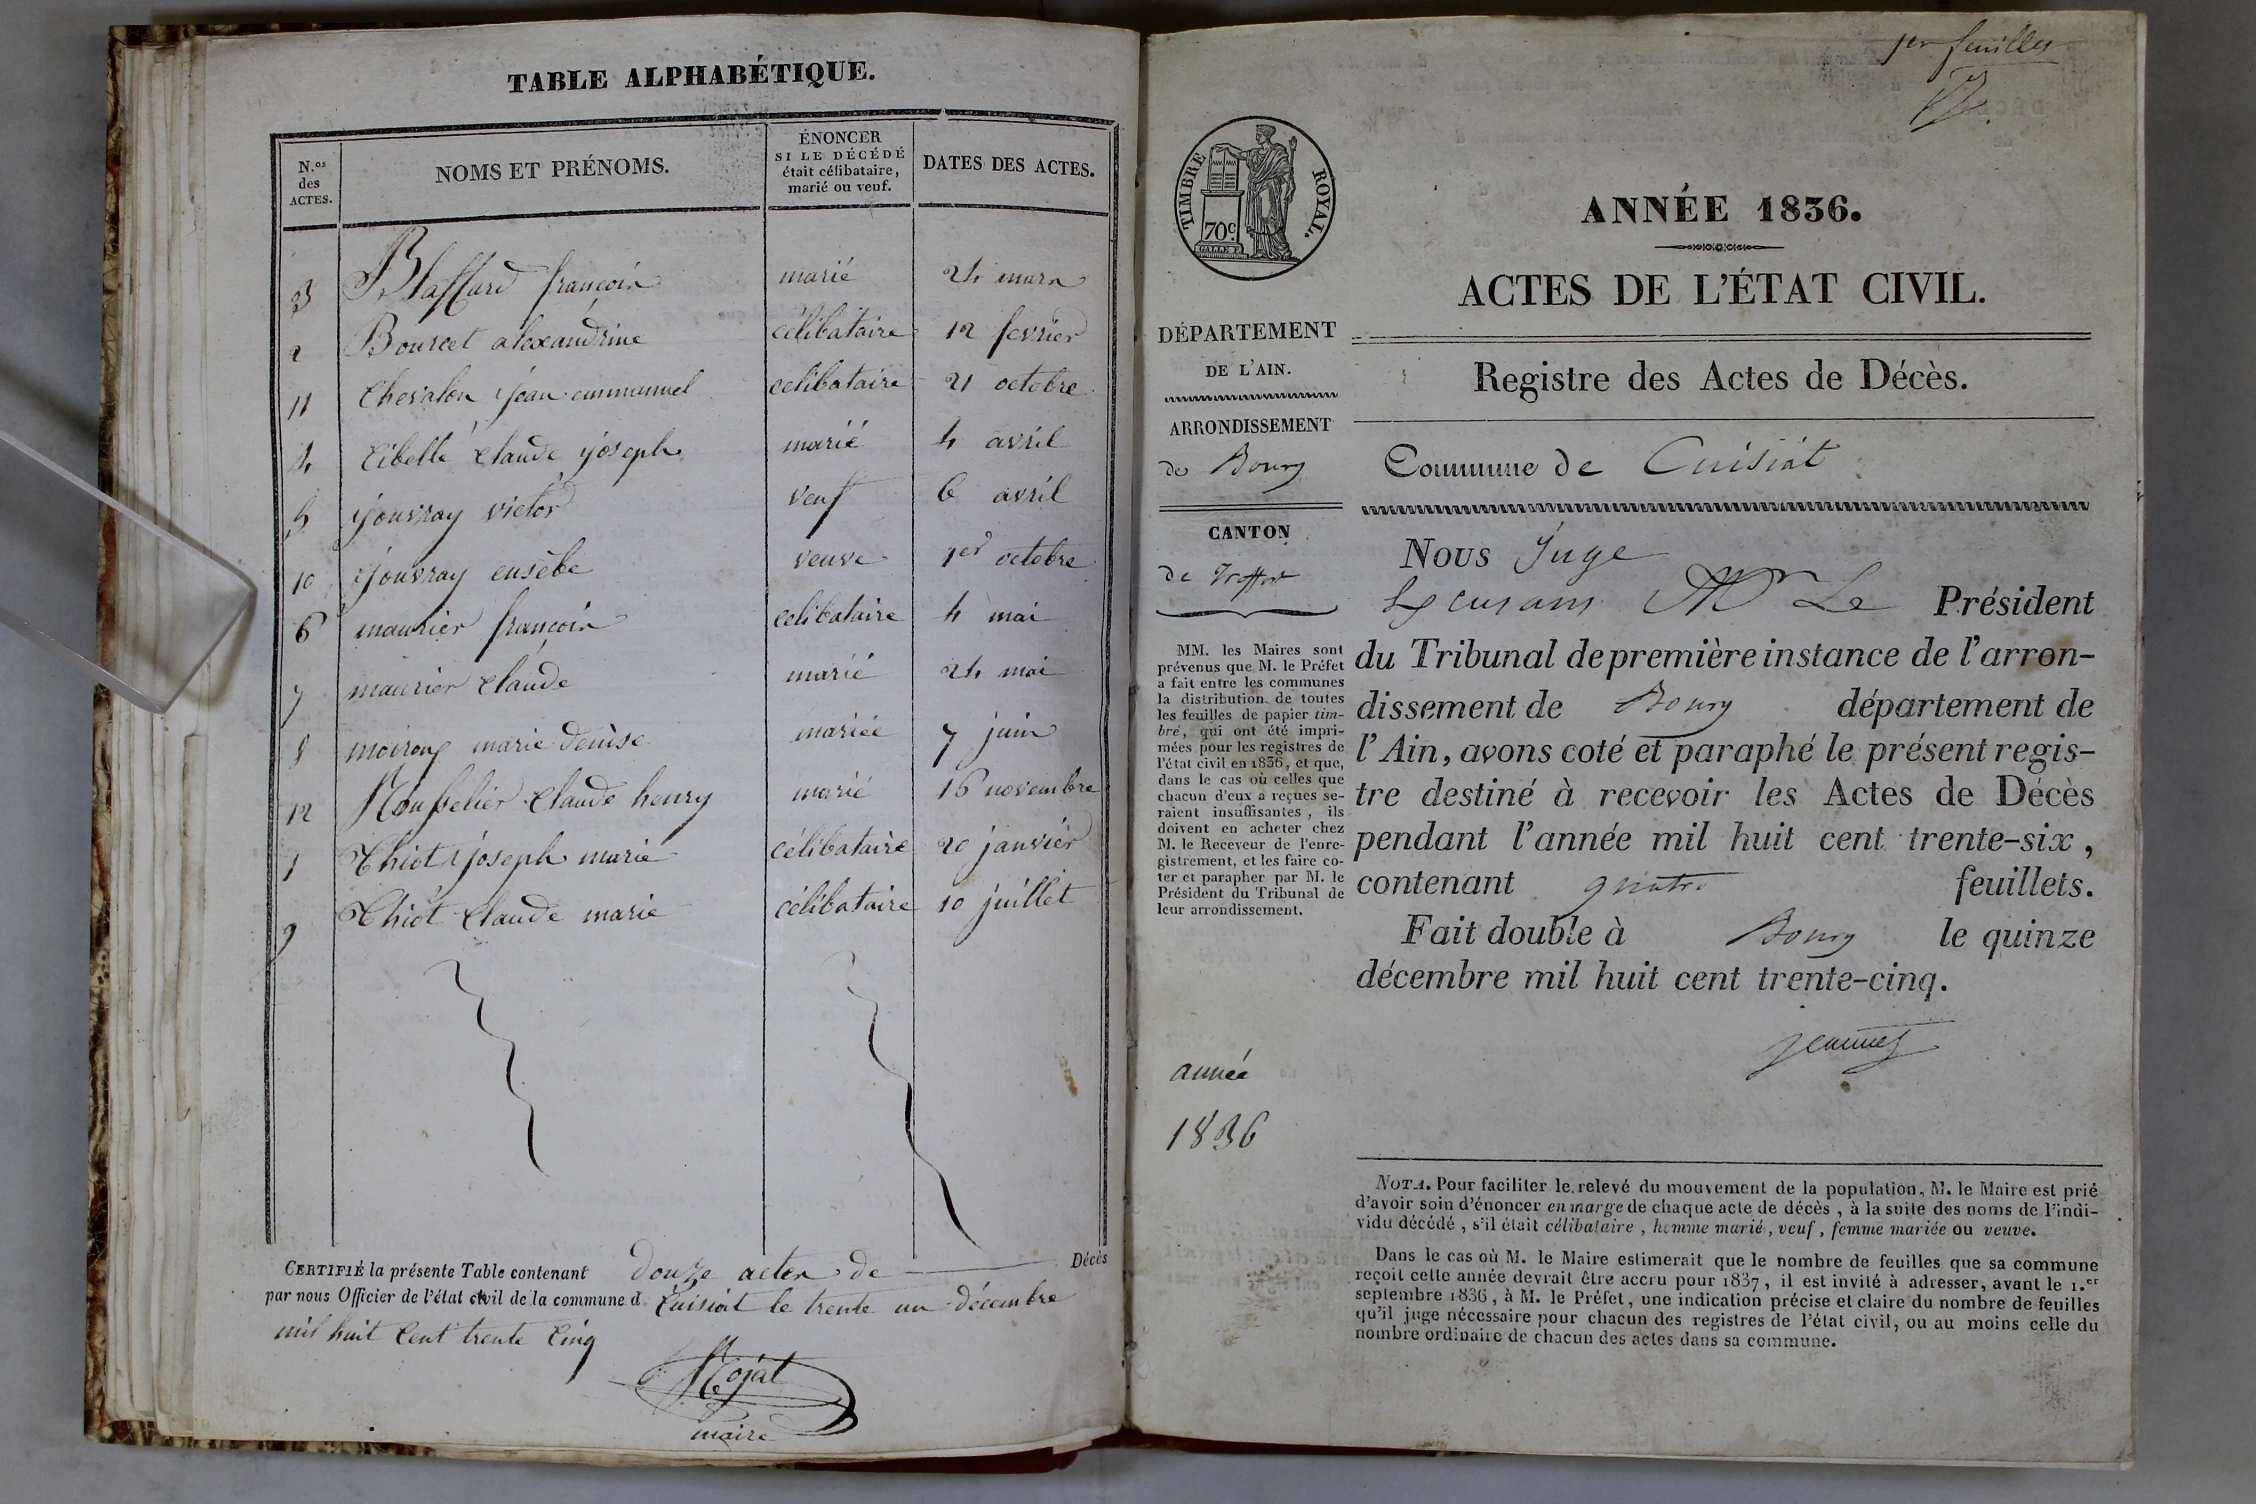 TABLE ALPHABÉTIQUE.
N.os des ACTES.
NOMS ET PRÉNOMS.
ÉNONCER SI LE DÉCÉDÉ était célibataire, marié ou veuf.
DATES DES ACTES.
3 Blaffard françois marié 24 mars
2 Bourcet alexandrine célibataire 12 fevrier
11 Chevalon jean emmanuel celibataire 21 octobre
4 Cibelle Claude joseph marié 4 avril
5 jouvray victor veuf 6 avril
10 jouvray eusèbe veuve 1er octobre
6 maurier françois celibataire 4 mai
7 maurier Claude marié 24 mai
8 moiroux marie denise mariée 7 juin
12 Claude henry marié 16 novembre
1 Thiot joseph marie célibataire 20 janvier
9 Thiot Claude marie célibataire 10 juillet
CERTIFIÉ la présente Table contenant douze actes de Décès
par nous Officier de l'état civil de la commune d Cuisiat le trente un décembre
mil huit Cent trente Cinq
maire
1er feuillet
TIMBRE ROYAL.
70c.
ANNÉE 1836.
ACTES DE L'ÉTAT CIVIL.
Registre des Actes de Décès.
DÉPARTEMENT
DE L'AIN.
ARRONDISSEMENT
de Bourg
CANTON
de Treffort
Commune de Cuisiat
MM. les Maires sont
prévenus que M. le Préfet
a fait entre les communes
la distribution de toutes
les feuilles de papier tim-
bré, qui ont été impri-
mées pour les registres de
l'état civil en 1836, et que,
dans le cas où celles que
chacun d'eux a reçues se-
raient insuffisantes, ils
doivent en acheter chez
M. le Receveur de l'enre-
gistrement, et les faire co-
ter et parapher par M. le
Président du Tribunal de
leur arrondissement.
année
1836
Nous Juge
Mr Le Président
du Tribunal de première instance de l'arron-
dissement de Bourg département de
l'Ain, avons coté et paraphé le présent regis-
tre destiné à recevoir les Actes de Décès
pendant l'année mil huit cent trente-six,
contenant quatre feuillets.
Fait double à Bourg le quinze
décembre mil huit cent trente-cinq.
NOTA. Pour faciliter le relevé du mouvement de la population, M. le Maire est prié
d'avoir soin d'énoncer en marge de chaque acte de décès, à la suite des noms de l'indi-
vidu décédé, s'il était célibataire, homme marié, veuf, femme mariée ou veuve.
Dans le cas où M. le Maire estimerait que le nombre de feuilles que sa commune
reçoit cette année devrait être accru pour 1837, il est invité à adresser, avant le 1.er
septembre 1836, à M. le Préfet, une indication précise et claire du nombre de feuilles
qu'il juge nécessaire pour chacun des registres de l'état civil, ou au moins celle du
nombre ordinaire de chacun des actes dans sa commune.